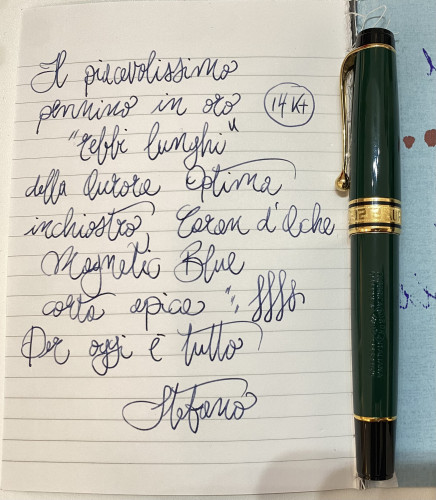 Il piacevolissimo
pennino in oro 14 Kt
"rebbi lunghi"
della Aurora Optima
inchiostro, Caran d'Ache
Magnetic Blue
carta apica
Per oggi è tutto
Stefano